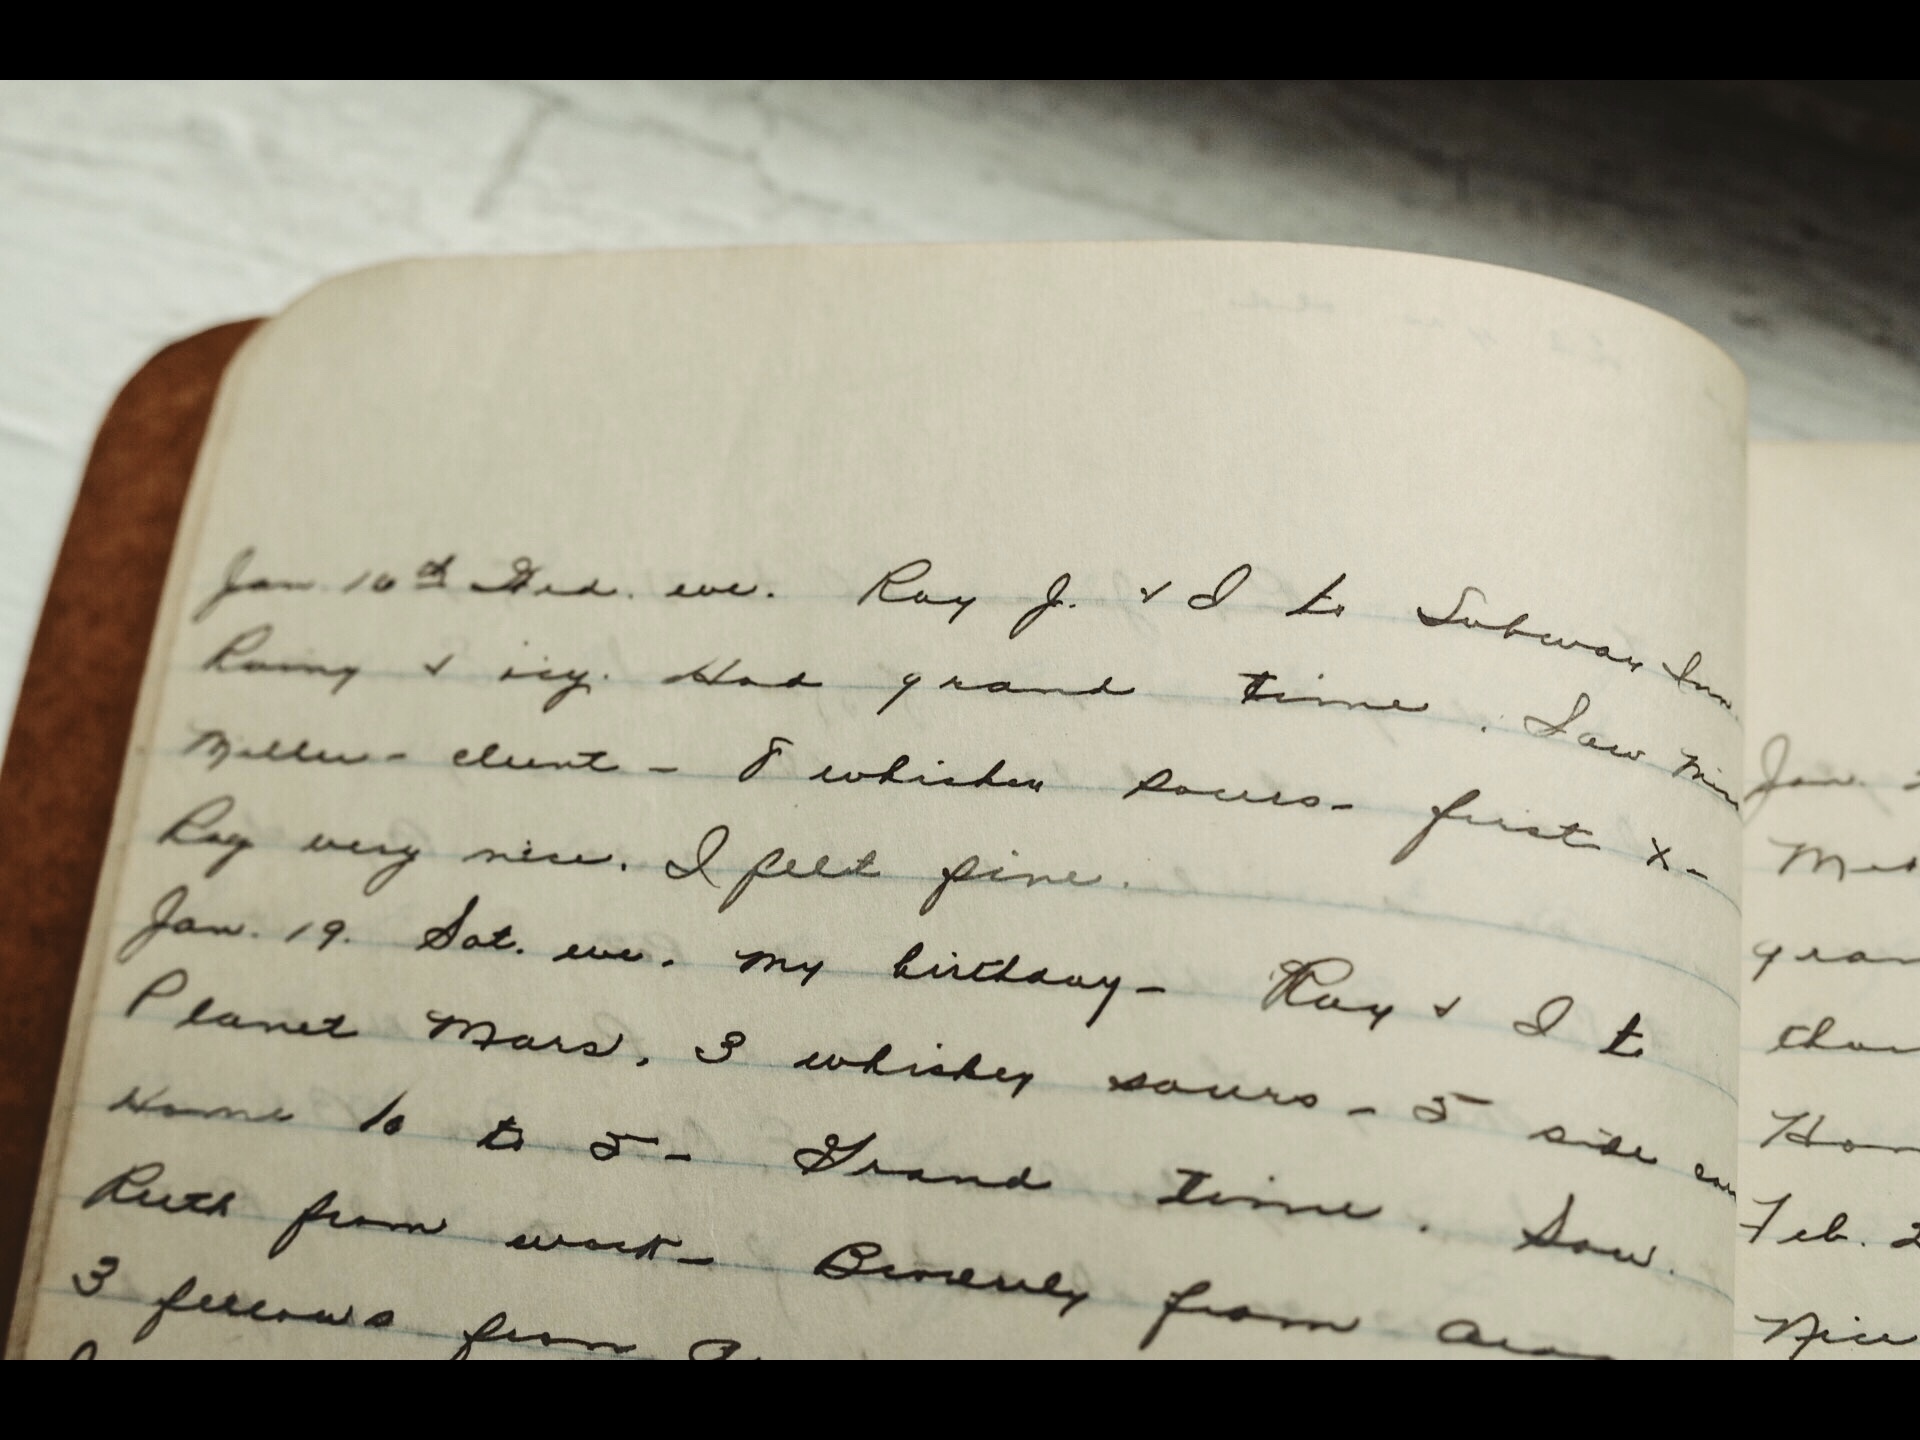 Jan 16th Wed. eve. Ray J. & I to Subway Inn
Rainy & icy. Had grand time. Saw
Miller - client - 8 whiskey sours - first x -
Ray very nice. I felt fine.
Jan. 19. Sat. eve. My birthday - Ray & I to
Planet Mars. 3 whiskey sours - 5 side
Home 10 to 5 - Grand time. Saw.
Ruth from work - Beverly from
3 fellows from
Jan.
Hom
Feb. 2
Nice